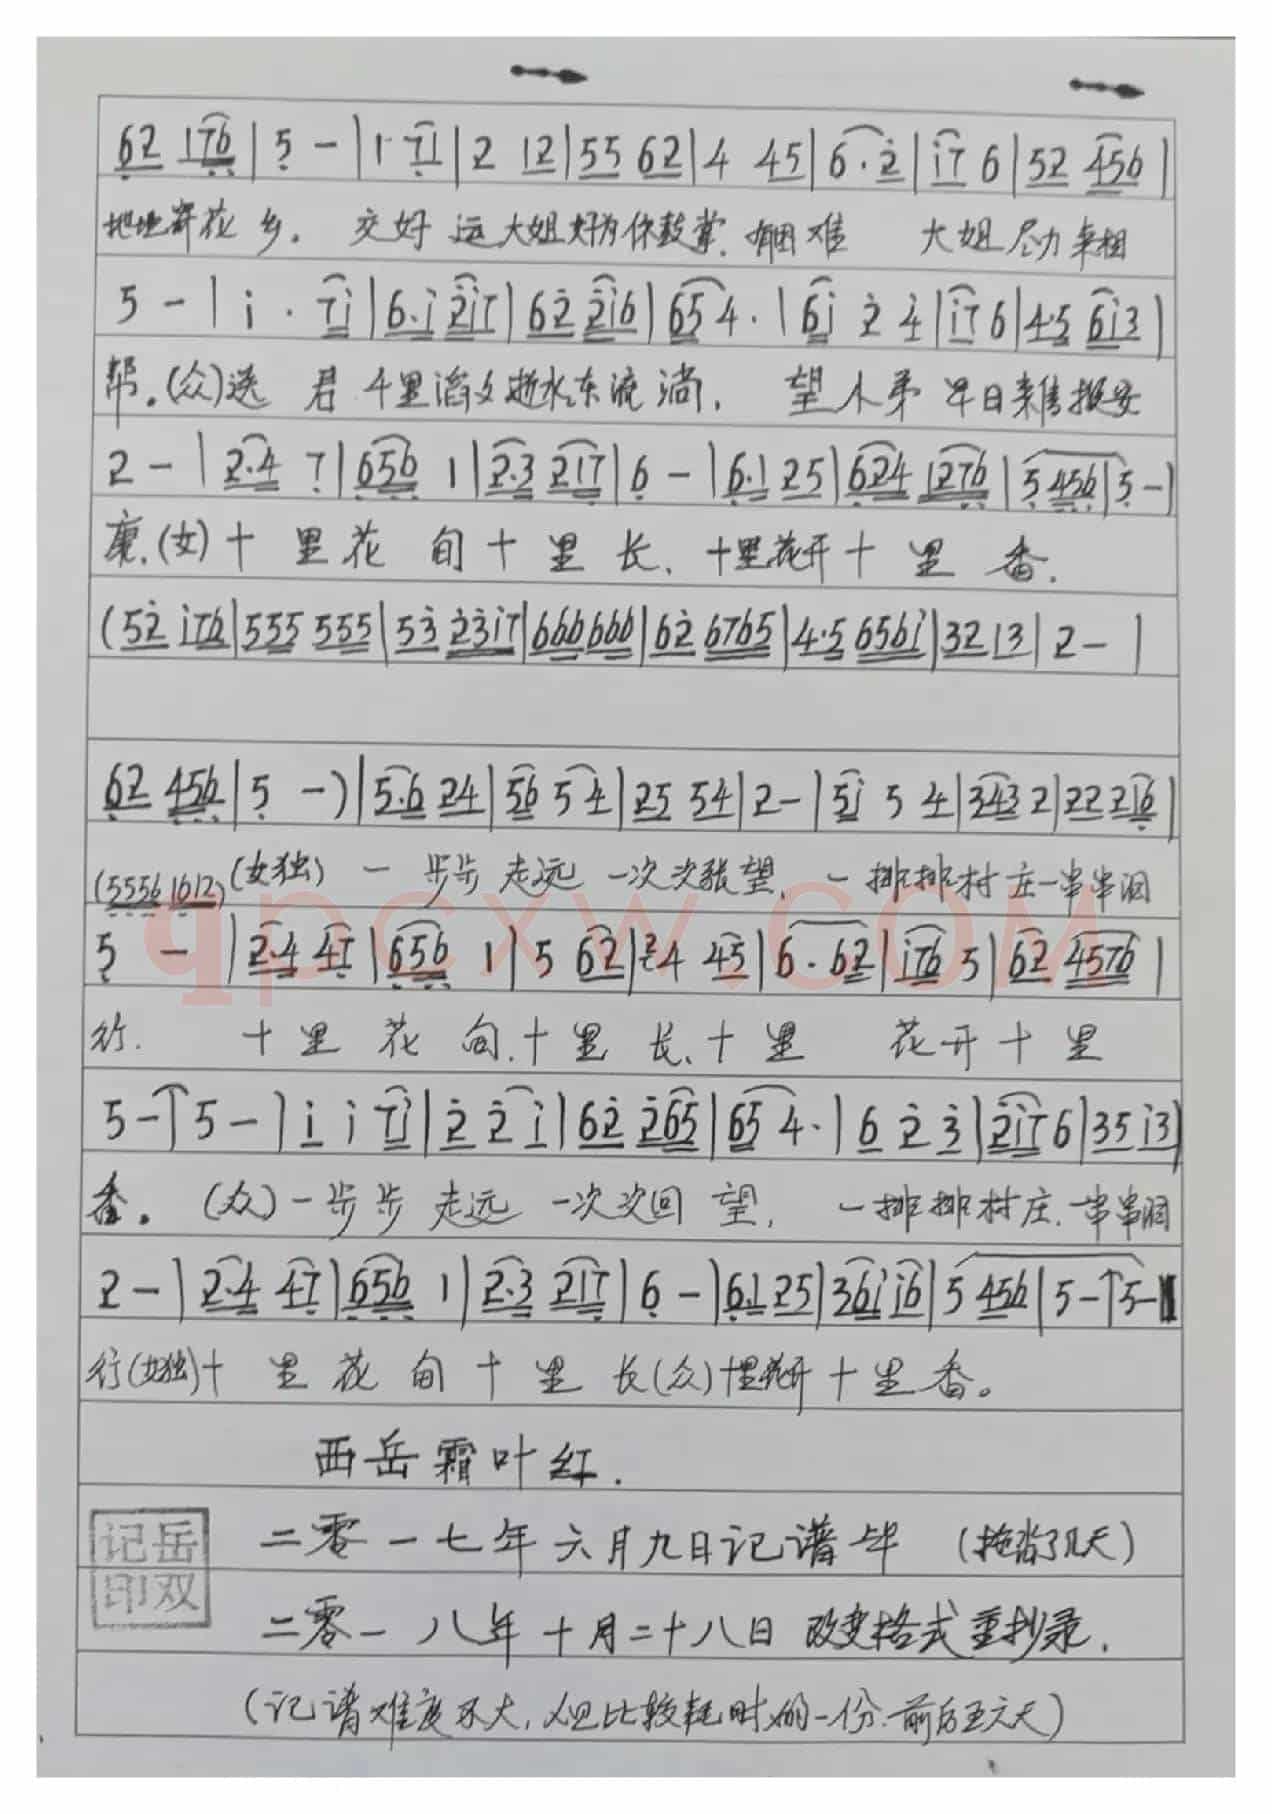 62 176 | 5 - | 1· 71 | 2 12 | 55 62 | 4 45 | 6·2 | i7 6 | 52 456 |
寄花乡。 交好运大姐好为你鼓掌.有困难 大姐尽力来相
5 - | i · 7i | 6·i 2i7 | 62 2i6 | 65 4· | 6i 2 4 | i7 6 | 4·5 6i3 |
帮。(众)送 君千里滔滔逝水东流淌, 望小弟早日来信报安
2 - | 2·4 7 | 656 1 | 2·3 217 | 6 - | 6·1 25 | 624 1276 | 5 456 | 5 - |
康.(女)十里花甸十里长、十里花开十里香.
(52 i76 | 555 555 | 53 23i7 | 666 666 | 62 6765 | 4·5 656i | 32 13 | 2 - |
62 456 | 5 -) | 5·6 24 | 56 5 4 | 25 54 | 2 - | 5i 5 4 | 343 2 | 22 216 |
(5556 1612)(女独) 一步步走远一次次张望, 一排排村庄一串串泪
5 - | 2·4 47 | 656 1 | 5 62 | 24 45 | 6·62 | i76 5 | 62 4576 |
行. 十里花甸.十里长、十里 花开十里
5 - | 5 - | i i 7i | 2 2 i | 62 265 | 65 4· | 6 2 3 | 2i7 6 | 35 i3 |
香。(众)一步步走远 一次次回望, 一排排村庄.一串串泪
2 - | 2·4 47 | 656 1 | 2·3 217 | 6 - | 6·1 25 | 36i i6 | 5 456 | 5 - | 5 - ‖
行(女独)十里花甸十里长(众)十里花开十里香。
西岳霜叶红.
二零一七年六月九日记谱毕 (拖沓了几天)
记岳
印双
二零一八年十月二十八日 改变格式重抄录.
(记谱难度不大,但比较耗时的一份.前后五六天)
qpcxw.COM